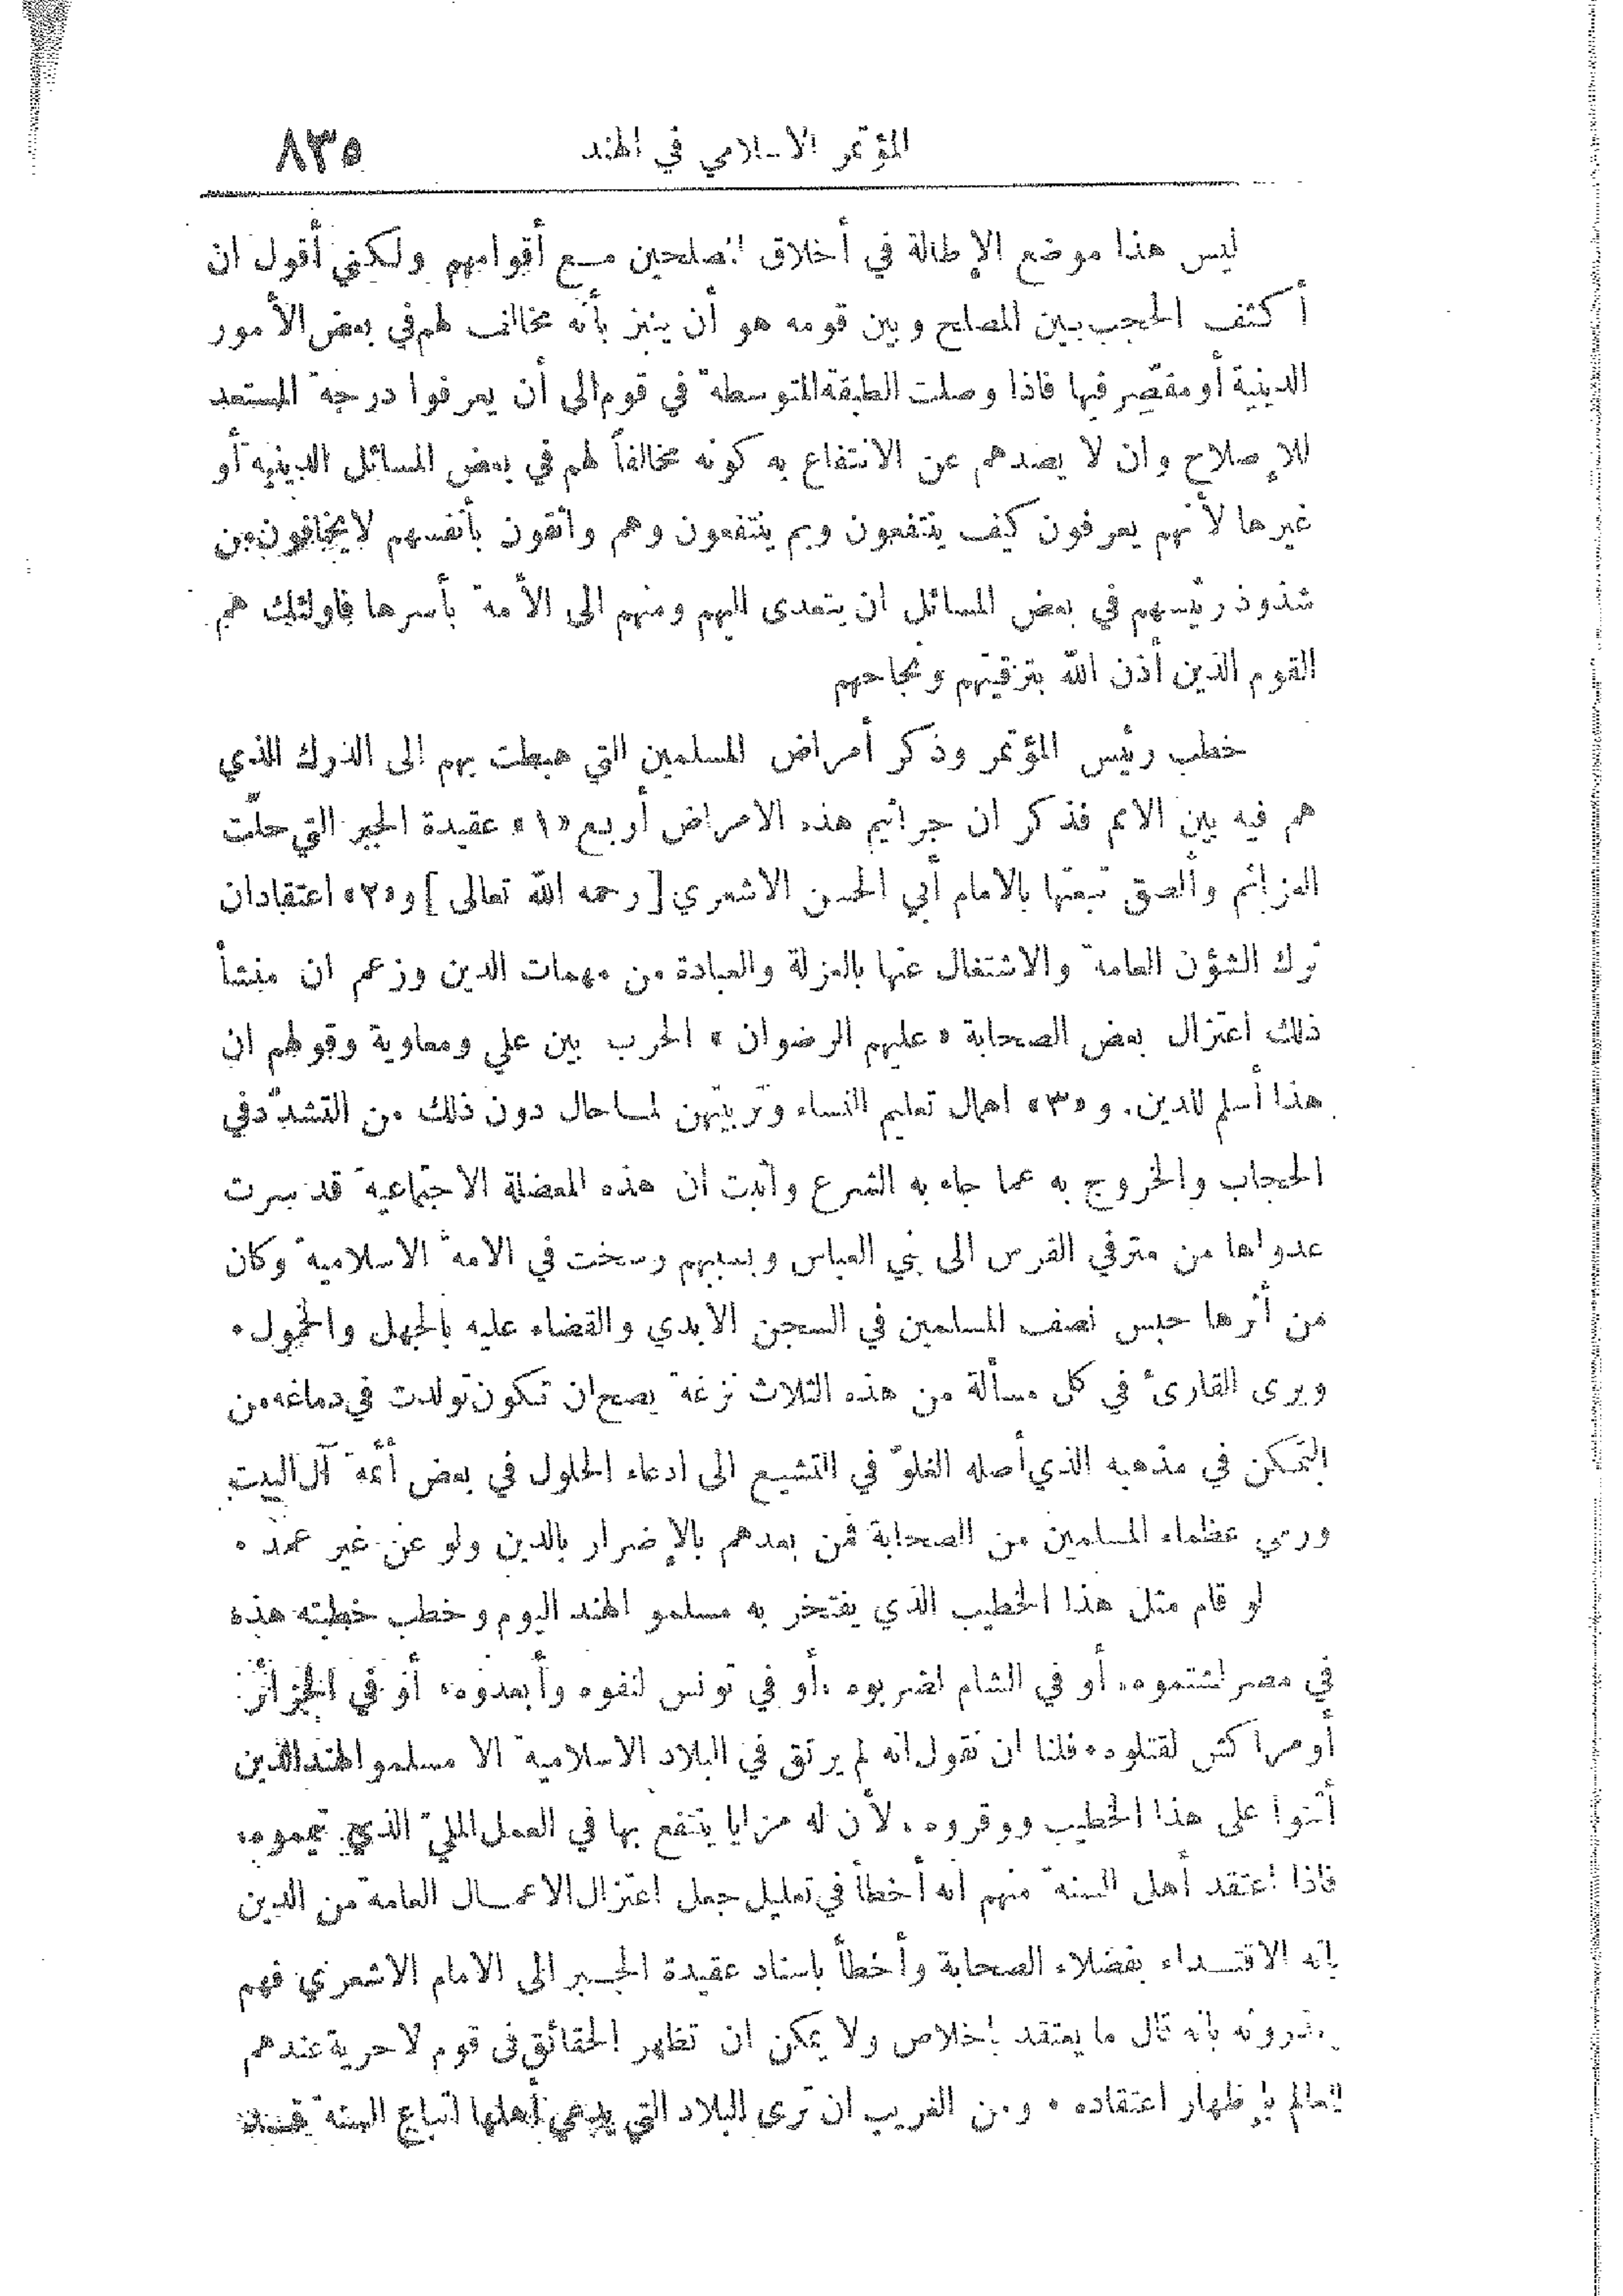 المؤتمر الاسلامي في الهند ٨٣٥
ليس هذا موضع الإطالة في أخلاق المصلحين مع أقوامهم ولكني أقول ان
أكثف الحجب بين المصلح وبين قومه هو أن ينبز بأنه مخالف لهم في بعض الأمور
الدينية أو مقصّر فيها فاذا وصلت الطبقة المتوسطة في قوم الى أن يعرفوا درجة المستعد
للإصلاح وان لا يصدهم عن الانتفاع به كونه مخالفاً لهم في بعض المسائل الدينية أو
غيرها لأنهم يعرفون كيف ينتفعون وبم ينتفعون وهم واثقون بأنفسهم لا يخافون من
شذوذ رئيسهم في بعض المسائل ان يتعدى اليهم ومنهم الى الأمة بأسرها فاولئك هم
القوم الذين أذن الله بترقيتهم ونجاحهم
خطب رئيس المؤتمر وذكر أمراض المسلمين التي هبطت بهم الى الدرك الذي
هم فيه بين الامم فذكر ان جراثيم هذه الامراض أربع «١» عقيدة الجبر التي حلّت
العزائم وألصق تبعتها بالامام أبي الحسن الاشعري [رحمه الله تعالى] و«٢» اعتقاد ان
ترك الشؤن العامة والاشتغال عنها بالعزلة والعبادة من مهمات الدين وزعم ان منشأ
ذلك اعتزال بعض الصحابة «عليهم الرضوان» الحرب بين علي ومعاوية وقولهم ان
هذا أسلم للدين. و«٣» اهمال تعليم النساء وتربيتهن لما حال دون ذلك من التشدّد في
الحجاب والخروج به عما جاء به الشرع وأثبت ان هذه المعضلة الاجتماعية قد سرت
عدواها من مترفي الفرس الى بني العباس وبسببهم رسخت في الامة الاسلامية وكان
من أثرها حبس نصف المسلمين في السجن الأبدي والقضاء عليه بالجهل والخمول.
ويرى القارئ في كل مسألة من هذه الثلاث نزغة يصح ان تكون تولدت في دماغه من
التمكن في مذهبه الذي أصله الغلوّ في التشيع الى ادعاء الحلول في بعض أئمة آل البيت
ورمي عظماء المسلمين من الصحابة فمن بعدهم بالإضرار بالدين ولو عن غير عمد.
لو قام مثل هذا الخطيب الذي يفتخر به مسلمو الهند اليوم وخطب خطبته هذه
في مصر لشتموه. أو في الشام لضربوه. أو في تونس لنفوه وأبعدوه. أو في الجزائر
أو مراكش لقتلوه. فلنا ان نقول انه لم يرتق في البلاد الاسلامية الا مسلمو الهند الذين
أثنوا على هذا الخطيب ووقروه. لأن له مزايا ينتفع بها في العمل الملي الذي تمموه.
فاذا اعتقد أهل السنة منهم انه أخطأ في تعليل جعل اعتزال الاعمال العامة من الدين
بانه الاقتداء بفضلاء الصحابة وأخطأ باسناد عقيدة الجبر الى الامام الاشعري فهم
يعذرونه بانه قال ما يعتقد بإخلاص ولا يمكن ان تظهر الحقائق في قوم لا حرية عندهم
لعالم بإظهار اعتقاده. ومن الغريب ان نرى البلاد التي يدعي أهلها اتباع السنة